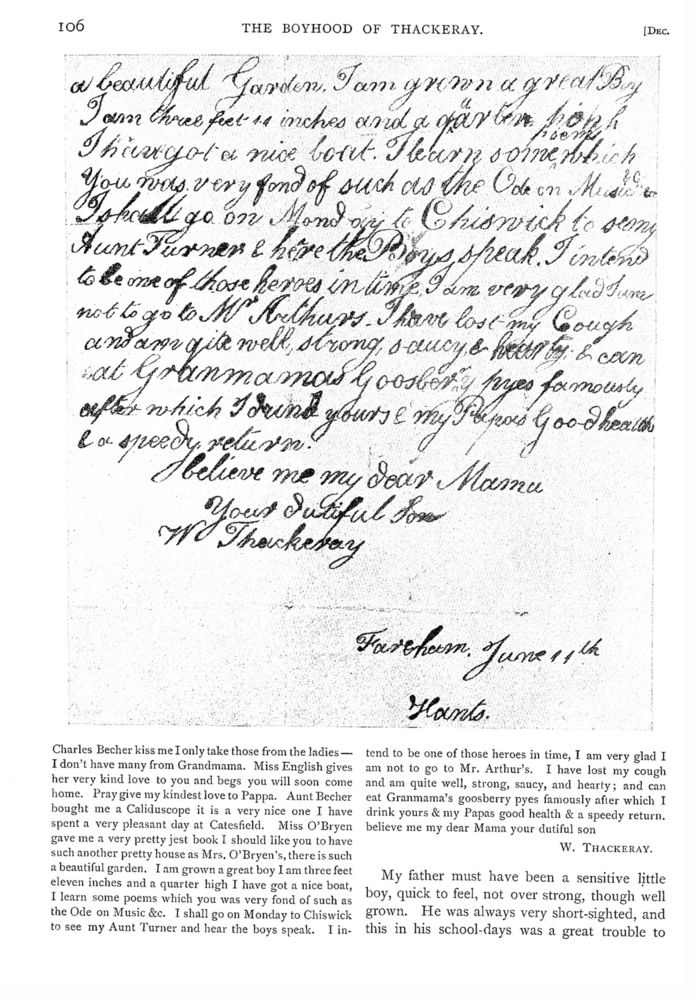 106
THE BOYHOOD OF THACKERAY.
[DEC.
a beautiful Garden. I am grown a great Boy
I am three feet 11 inches and a qarter high
I have got a nice boat. I learn some poems which
You was very fond of such as the Ode on Music &c
I shall go on Monday to Chiswick to see my
Aunt Turner & here the Boys speak. I intend
to be one of those heroes in time, I am very glad I am
not to go to Mr Arthurs. I have lost my Cough
and am qite well, strong, saucy & hearty & can
eat Granmamas Goosberry pyes famously
after which I drink yours & my Papas Good health
& a speedy return.
believe me my dear Mama
Your dutiful Son
W Thackeray
Fareham. June 11th
Hants.
Charles Becher kiss me I only take those from the ladies—
I don't have many from Grandmama. Miss English gives
her very kind love to you and begs you will soon come
home. Pray give my kindest love to Pappa. Aunt Becher
bought me a Caliduscope it is a very nice one I have
spent a very pleasant day at Catesfield. Miss O'Bryen
gave me a very pretty jest book I should like you to have
such another pretty house as Mrs. O'Bryen's, there is such
a beautiful garden. I am grown a great boy I am three feet
eleven inches and a quarter high I have got a nice boat,
I learn some poems which you was very fond of such as
the Ode on Music &c. I shall go on Monday to Chiswick
to see my Aunt Turner and hear the boys speak. I in-
tend to be one of those heroes in time, I am very glad I
am not to go to Mr. Arthur's. I have lost my cough
and am quite well, strong, saucy, and hearty; and can
eat Granmama's goosberry pyes famously after which I
drink yours & my Papas good health & a speedy return.
believe me my dear Mama your dutiful son
W. THACKERAY.
My father must have been a sensitive little
boy, quick to feel, not over strong, though well
grown. He was always very short-sighted, and
this in his school-days was a great trouble to